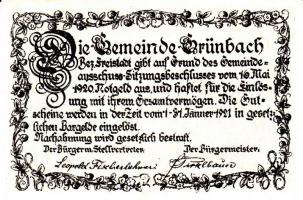 Die Gemeinde Grünbach
Bez. Freistadt gibt auf Grund des Gemeinde-
ausschuss-Sitzungsbeschlusses vom 16. Mai
1920 Notgeld aus, und haftet für die Einlös-
ung mit ihrem Gesamtvermögen. Die Gut-
scheine werden in der Zeit vom 1.-31. Jänner 1921 in gesetz-
lichen Bargelde eingelöst.
Nachahmung wird gesetzlich bestraft.
Der Bürgerm. Stellvertreter. Der Bürgermeister.
Leopold